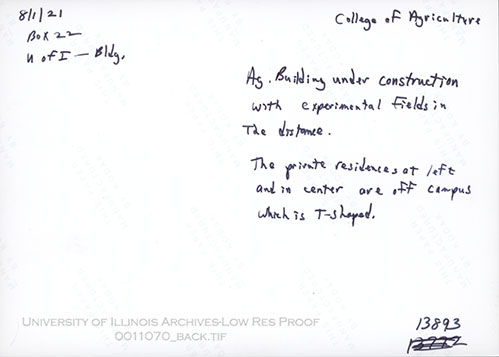 8/1/21
Box 22
U of I - Bldg.
College of Agriculture
Ag. Building under construction
with experimental fields in
The distance.
The private residences at left
and in center are off campus
which is T-shaped.
UNIVERSITY OF ILLINOIS ARCHIVES-LOW RES PROOF
0011070_BACK.TIF
13893